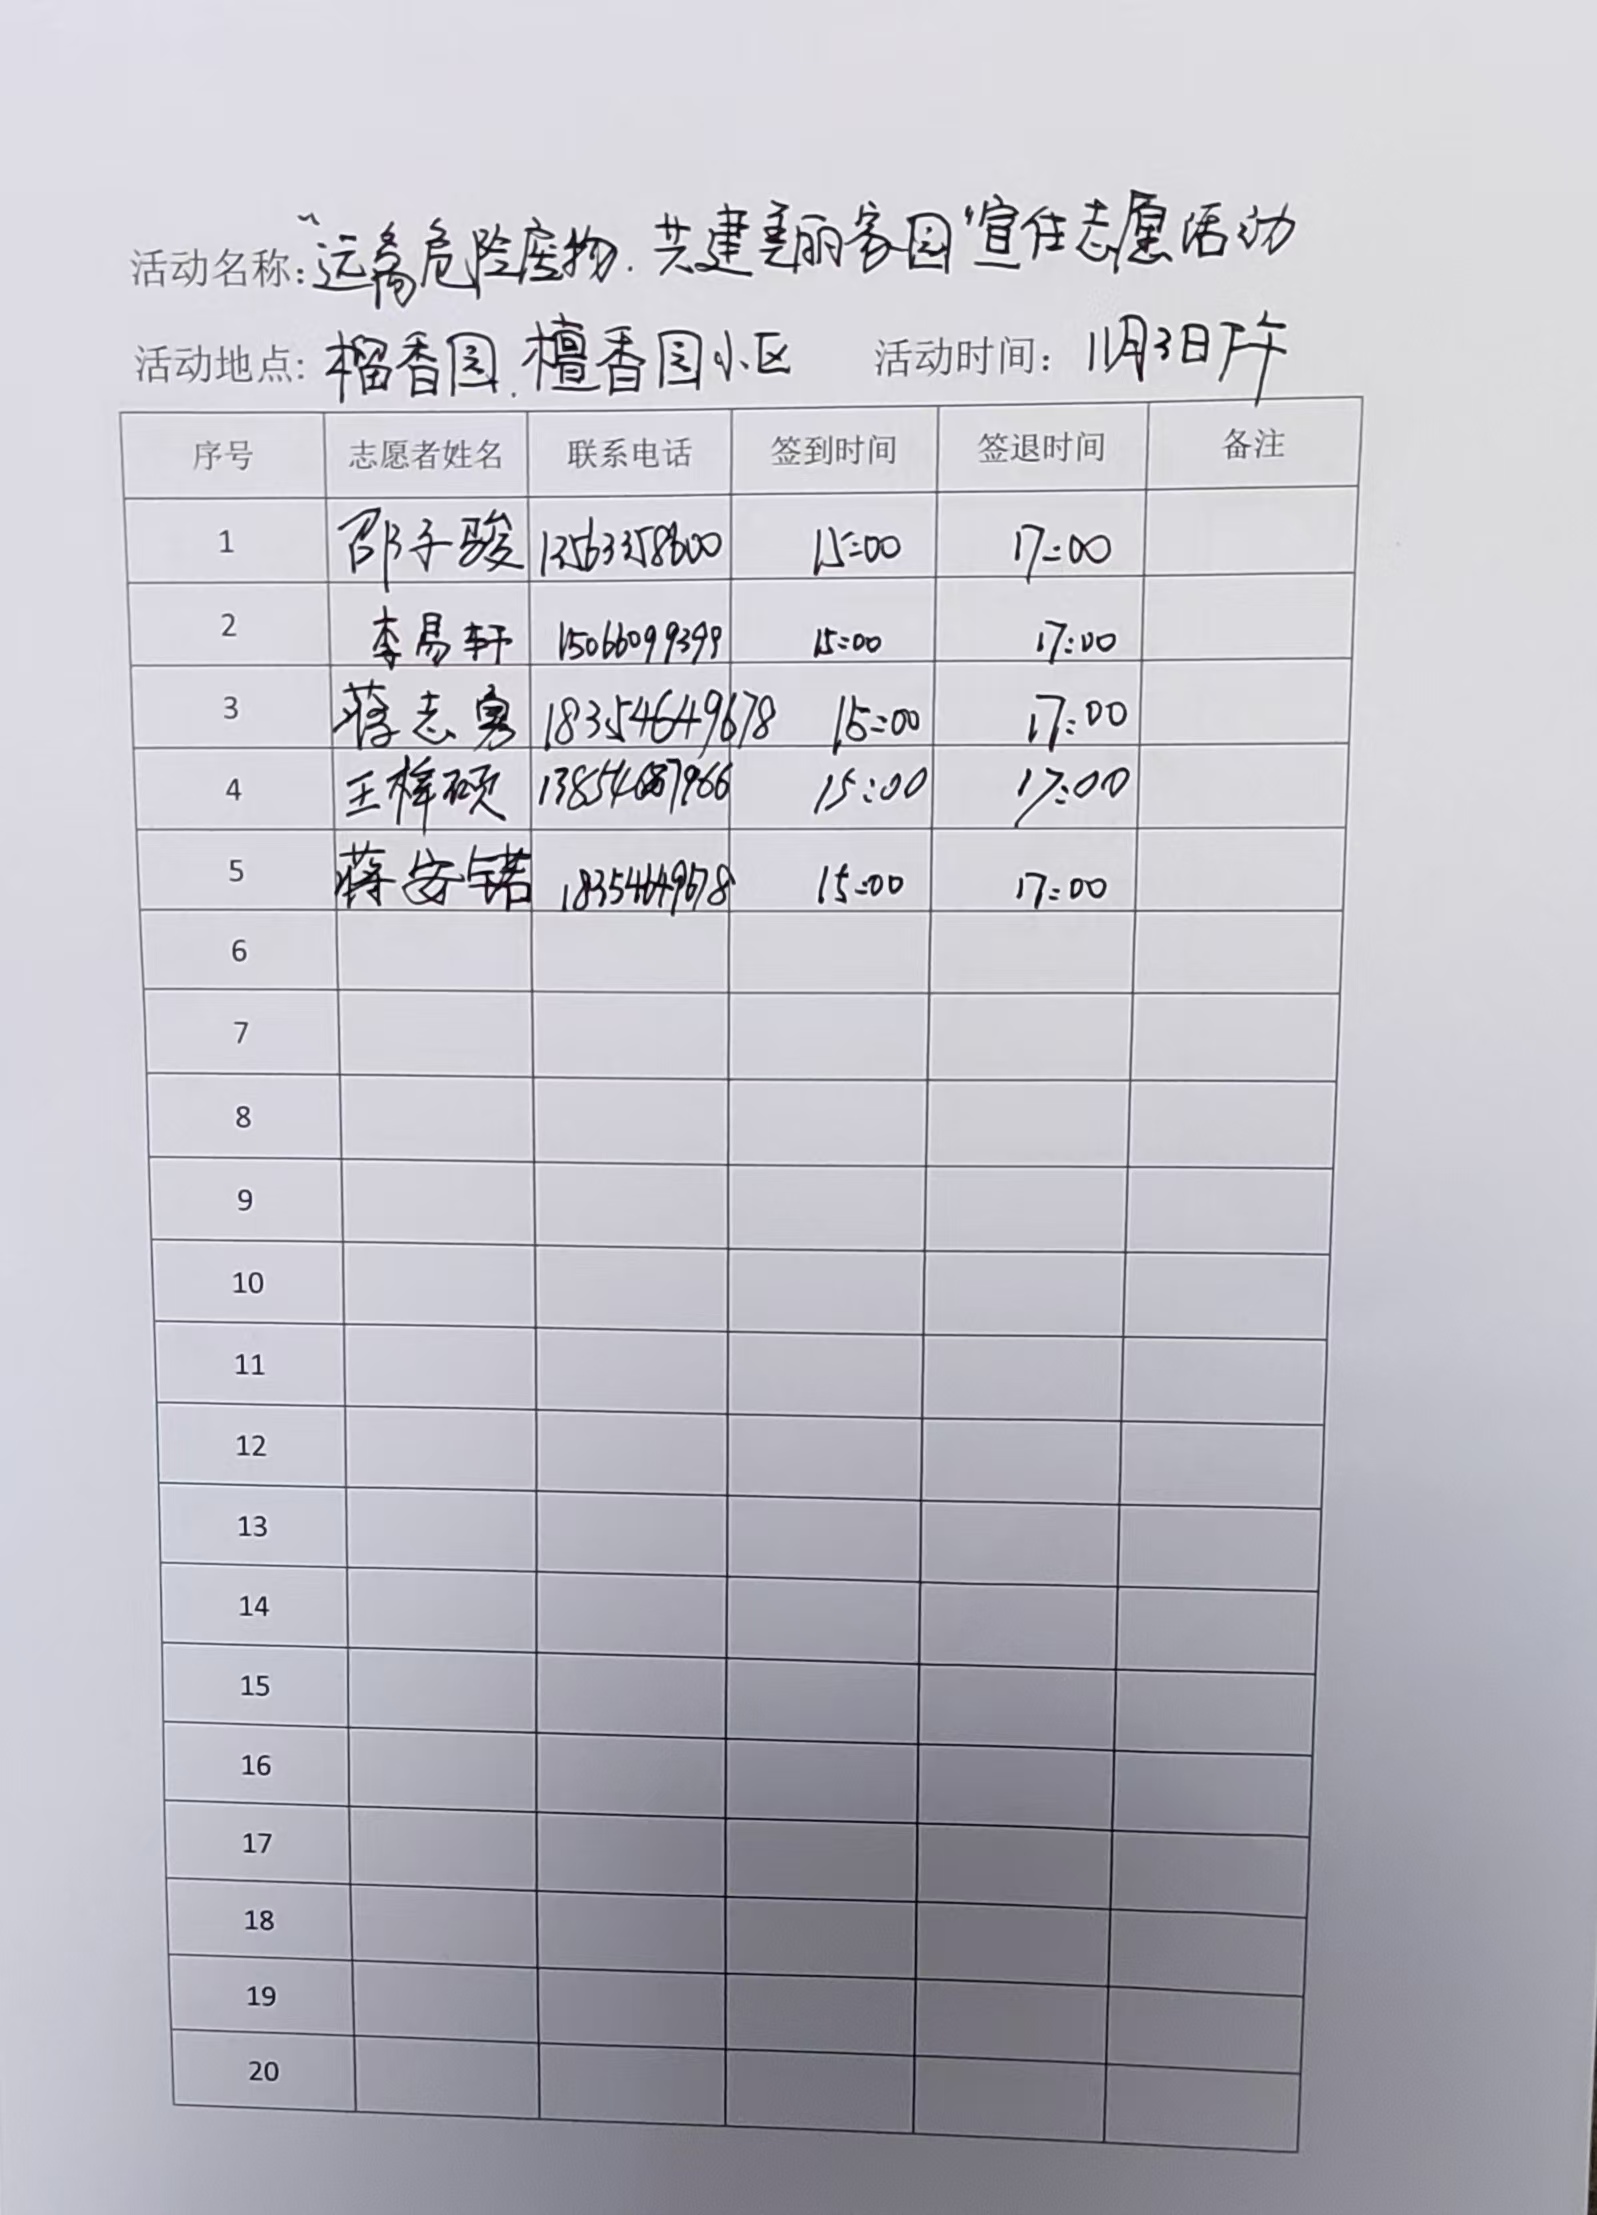 活动名称:"远离危险废物.共建美丽家园"宣传志愿活动
活动地点:榴香园.檀香园小区 活动时间:11月3日下午
序号 志愿者姓名 联系电话 签到时间 签退时间 备注
1 邵子骏 13563358600 15:00 17:00
2 李易轩 15066099399 15:00 17:00
3 蒋志勇 18354649678 15:00 17:00
4 王梓硕 15:00 17:00
5 蒋安锘 18354649678 15:00 17:00
6
7
8
9
10
11
12
13
14
15
16
17
18
19
20